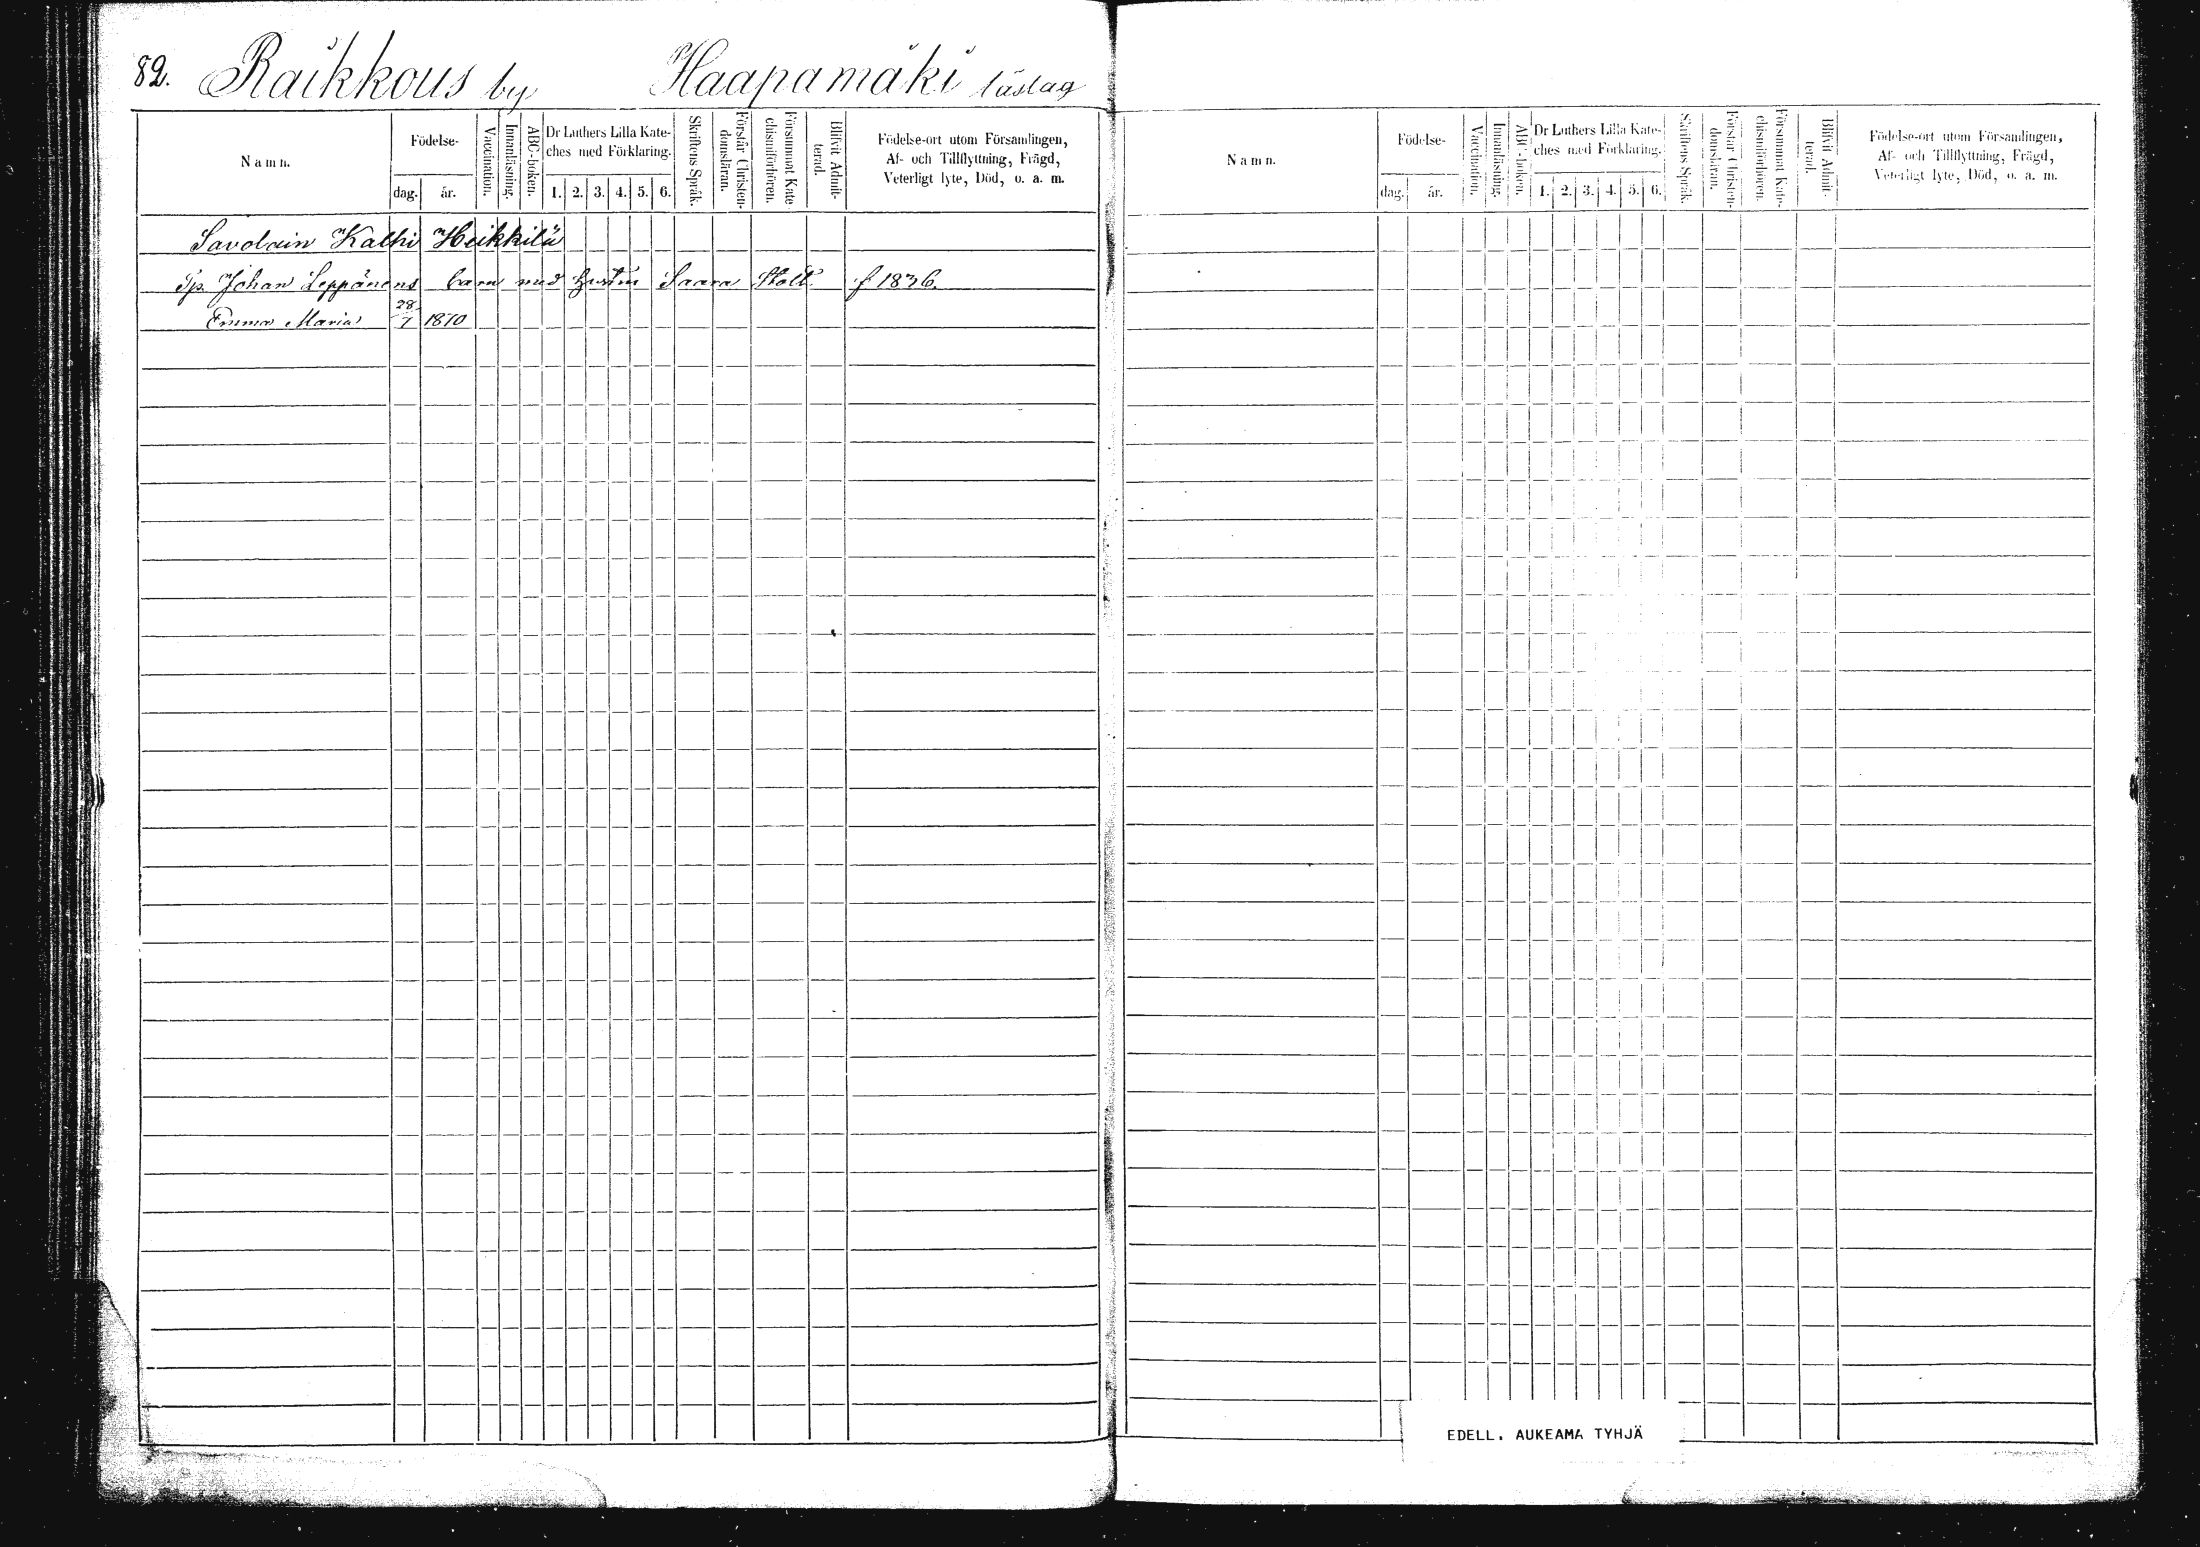 82. Raikkous by Haapamäki läslag
Namn.
Födelse-
dag. år.
Vaccination.
Innanläsning.
ABC-boken.
Dr Luthers Lilla Kate-
ches med Förklaring.
1. 2. 3. 4. 5. 6.
Skriftens Språk.
Förstår Christen-
domsläran.
Försummat Kate-
chismiförhören.
Blifvit Admit-
terad.
Födelse-ort utom Församlingen,
Af- och Tillflyttning, Frägd,
Veterligt lyte, Död, o. a. m.
Savolain Kalhi Heikkilä
Tp. Johan Leppänens barn med hustru Saara Holt. f 1836.
Emma Maria 28/7 1870
Namn.
Födelse-
dag. år.
Vaccination.
Innanläsning.
ABC-boken.
Dr Luthers Lilla Kate-
ches med Förklaring.
1. 2. 3. 4. 5. 6.
Skriftens Språk.
Förstår Christen-
domsläran.
Försummat Kate-
chismiförhören.
Blifvit Admit-
terad.
Födelse-ort utom Församlingen,
Af- och Tillflyttning, Frägd,
Veterligt lyte, Död, o. a. m.
EDELL. AUKEAMA TYHJÄ